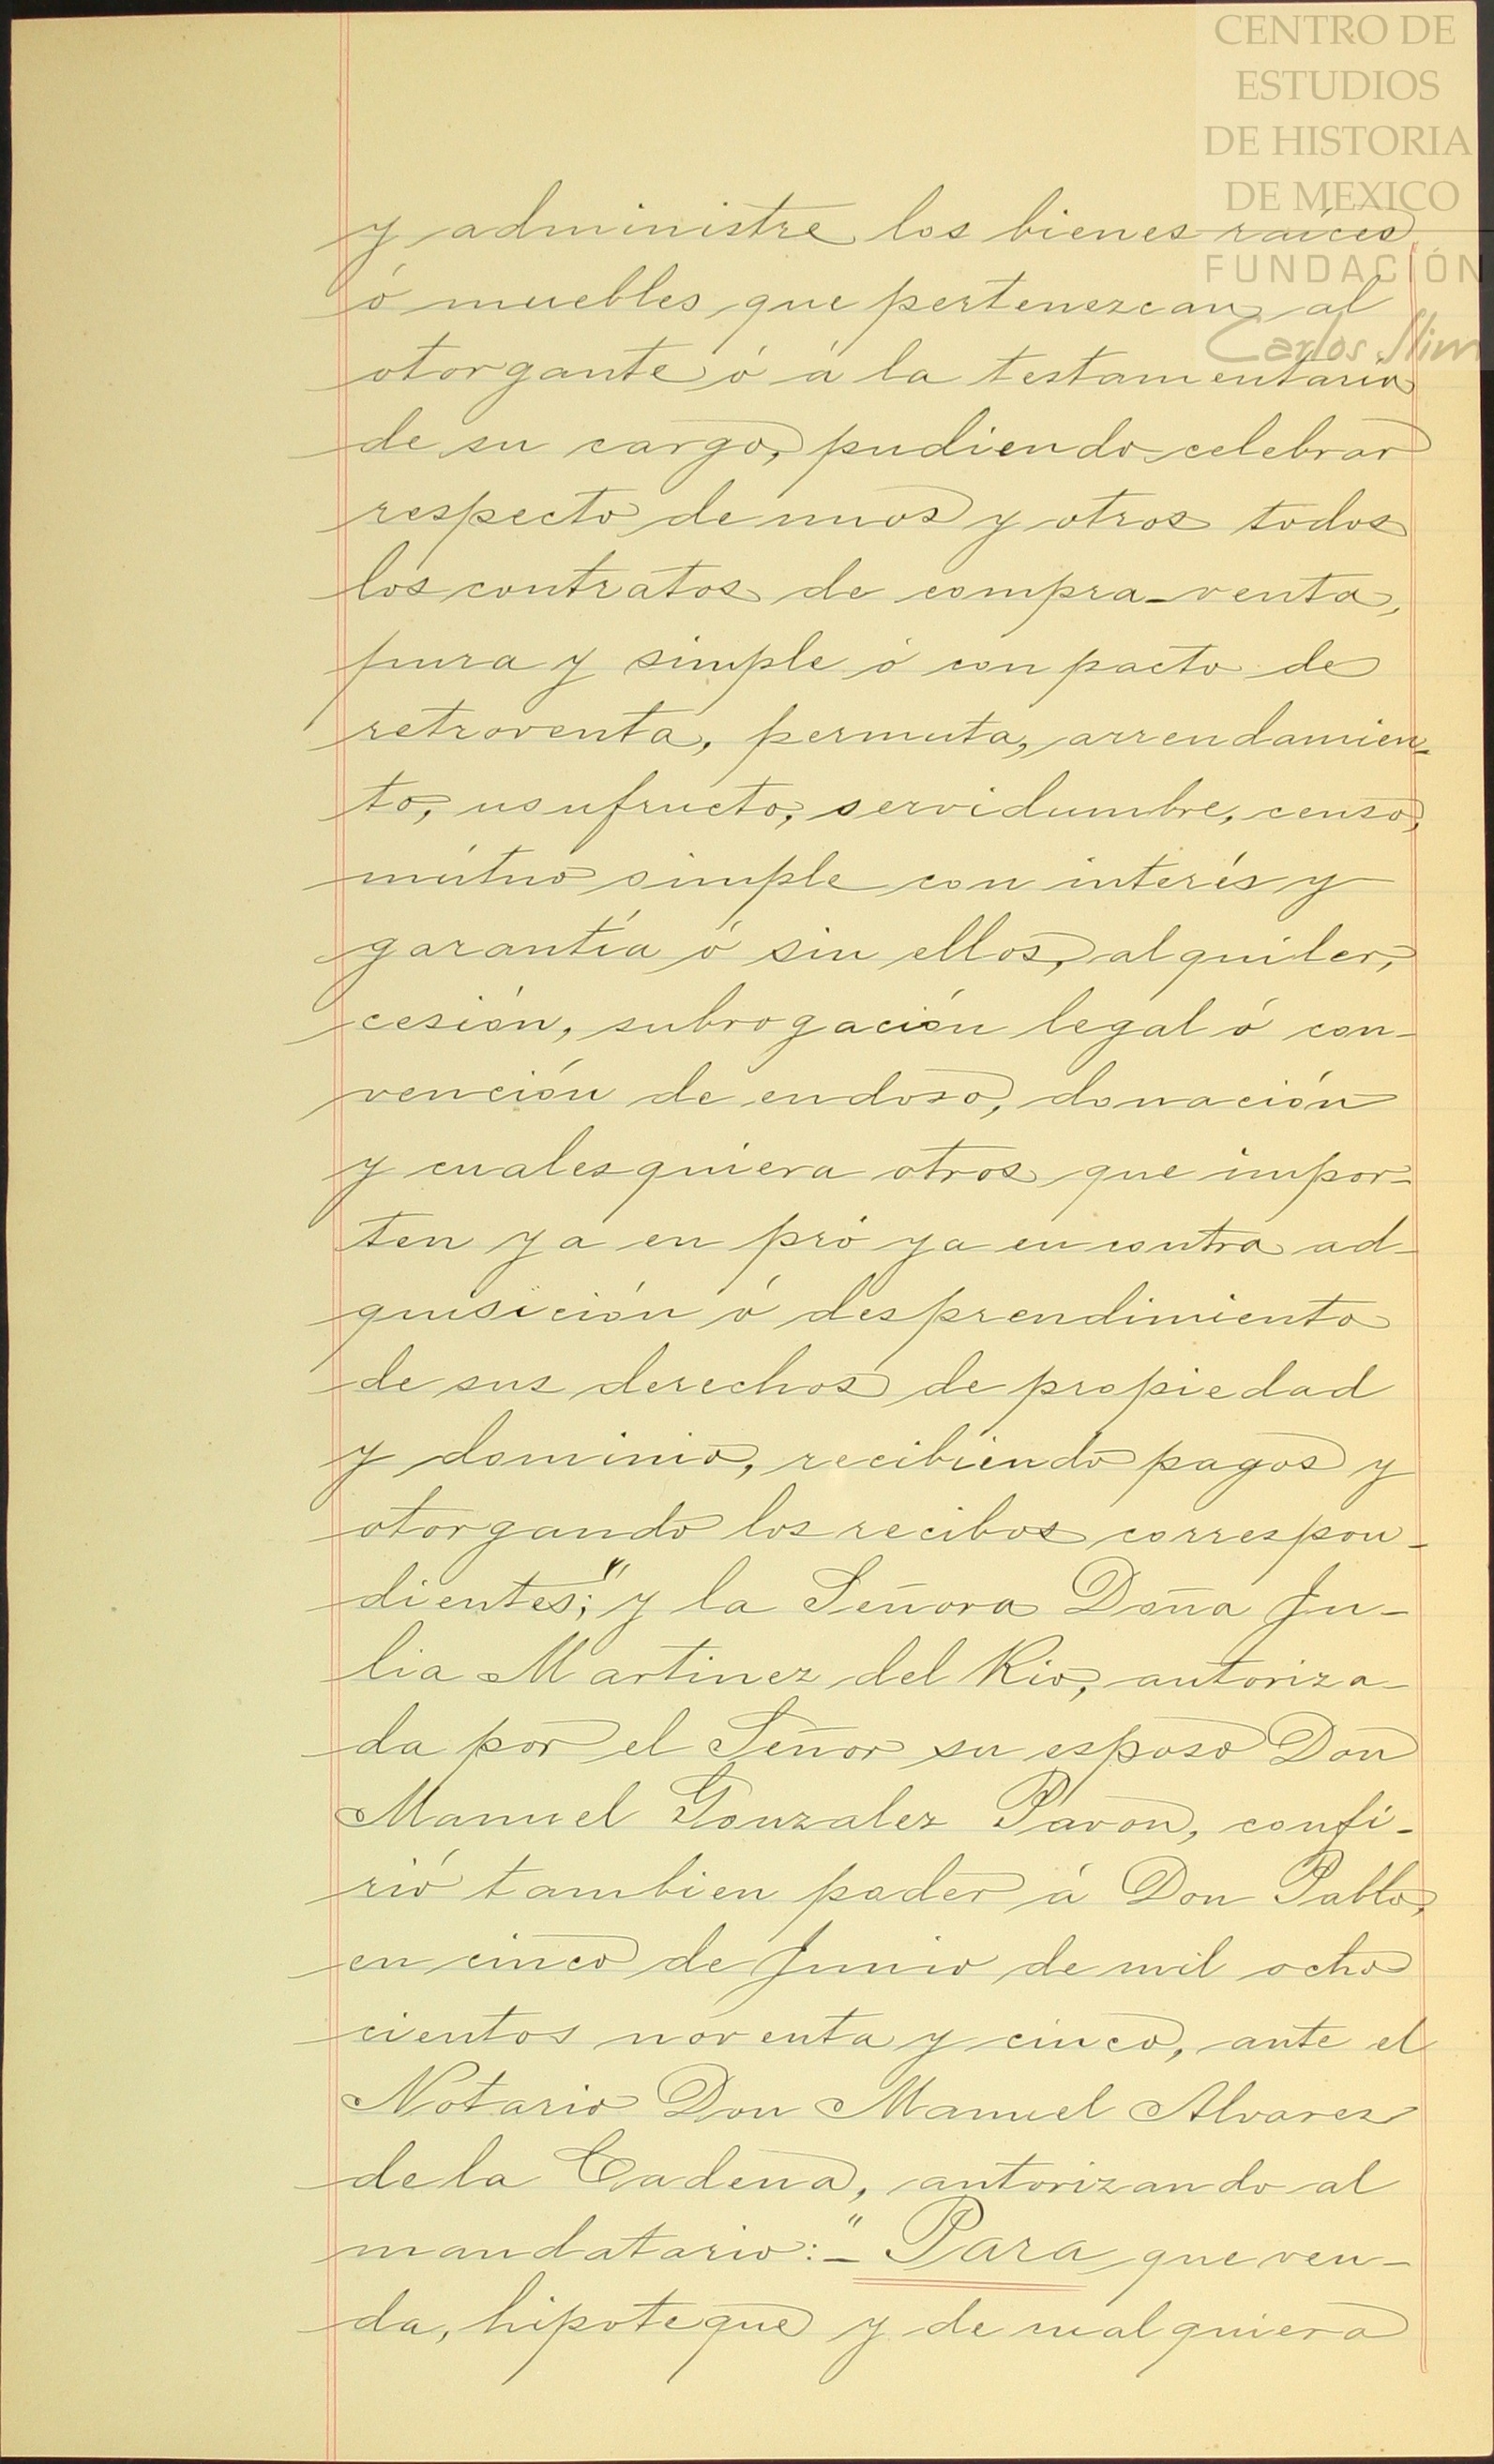 CENTRO DE
ESTUDIOS
DE HISTORIA
DE MEXICO
FUNDACIÓN
Carlos Slim
y administre los bienes raíces
ó muebles que pertenezcan al
otorgante ó á la testamentaria
de su cargo, pudiendo celebrar
respecto de unos y otros todos
los contratos de compra-venta,
pura y simple ó con pacto de
retroventa, permuta, arrendamien-
to, usufructo, servidumbre, censo,
mútuo simple con interés y
garantía ó sin ellos, alquiler,
cesión, subrogación legal ó con-
vención de endoso, donación
y cualesquiera otros que impor-
ten ya en pró ya en contra ad-
quisición ó desprendimiento
de sus derechos de propiedad
y dominio, recibiendo pagos y
otorgando los recibos correspon-
dientes;" y la Señora Doña Ju-
lia Martinez del Rio, autoriza-
da por el Señor su esposo Don
Manuel Gonzalez Pavon, confi-
rió tambien poder á Don Pablo,
en cinco de Junio de mil ocho
cientos noventa y cinco, ante el
Notario Don Manuel Alvarez
de la Cadena, autorizando al
mandatario:-" Para que ven-
da, hipoteque y de cualquiera